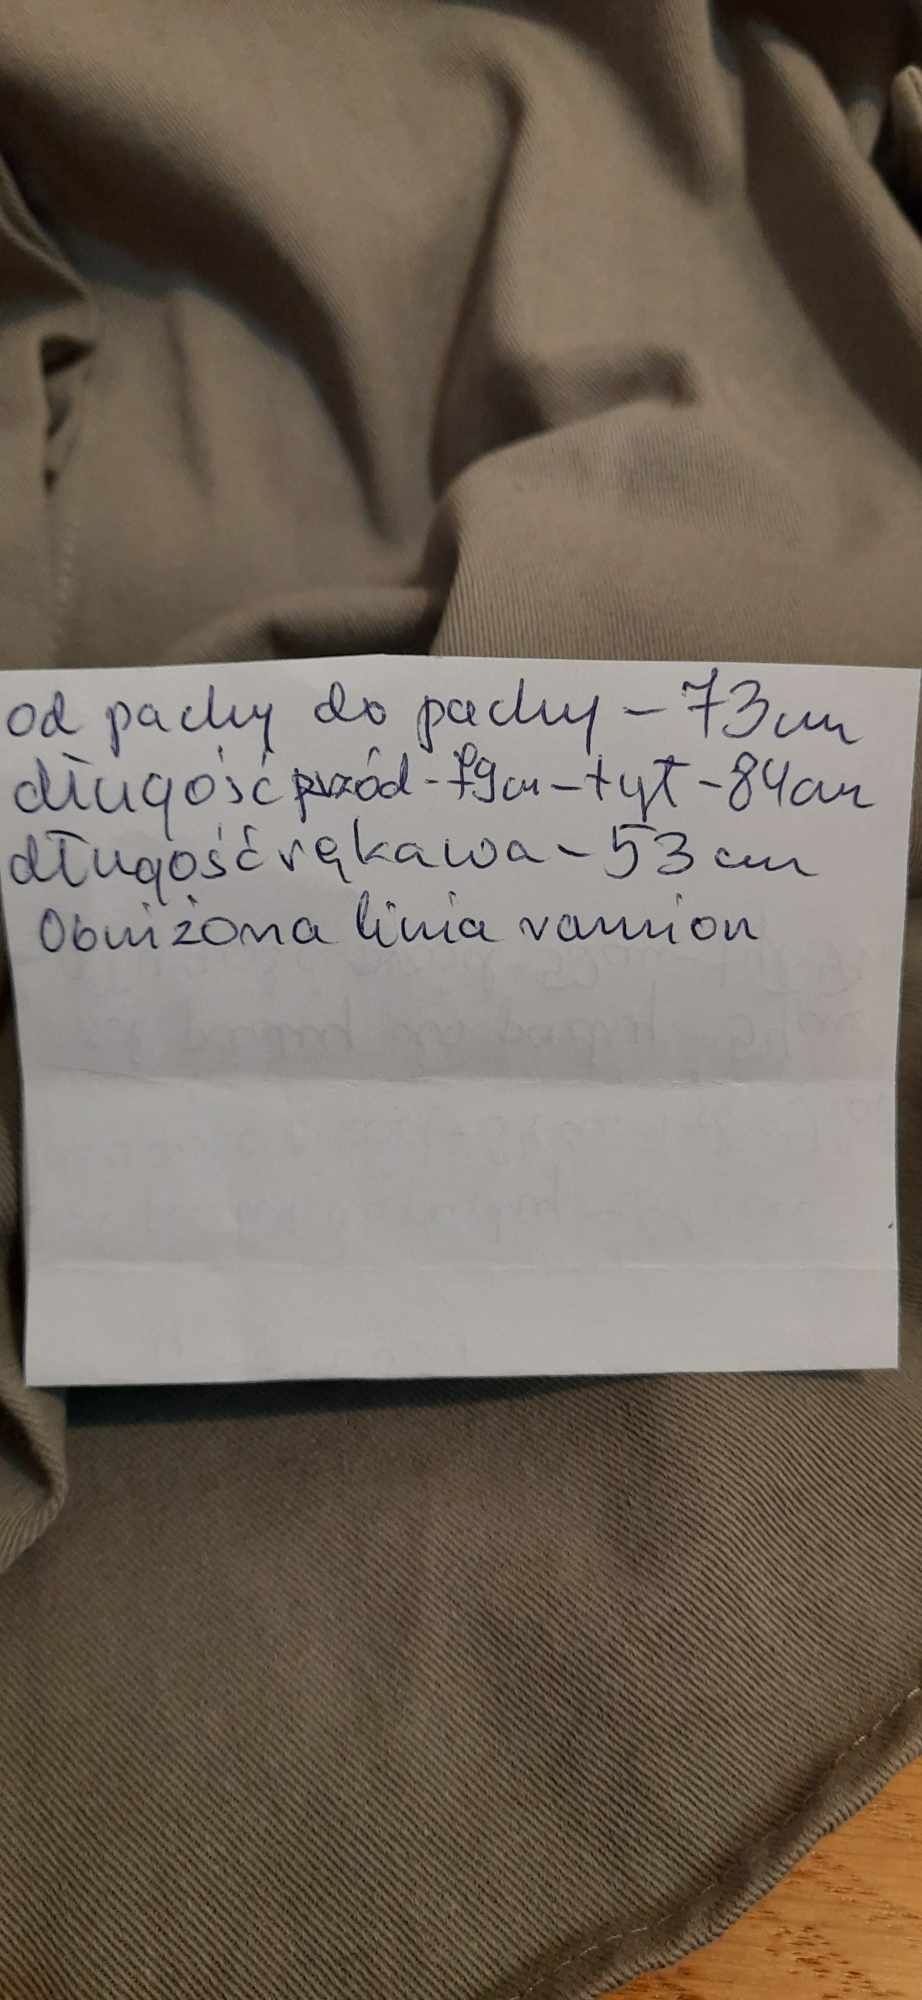 od pachy do pachy - 73 cm
długość przód - 79 cm - tył - 84 cm
długość rękawa - 53 cm
Obniżona linia ramion